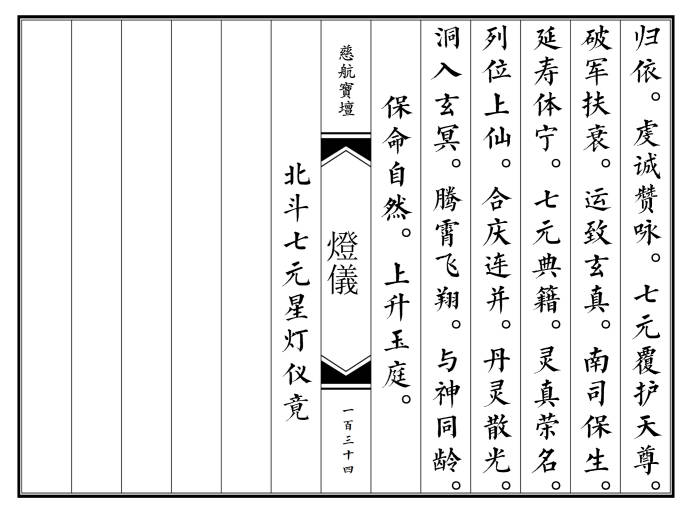 归依。虔诚赞咏。七元覆护天尊。
破军扶衰。运致玄真。南司保生。
延寿体宁。七元典籍。灵真荣名。
列位上仙。合庆连并。丹灵散光。
洞入玄冥。腾霄飞翔。与神同龄。
保命自然。上升玉庭。
慈航寶壇
燈儀
一百三十四
北斗七元星灯仪竟